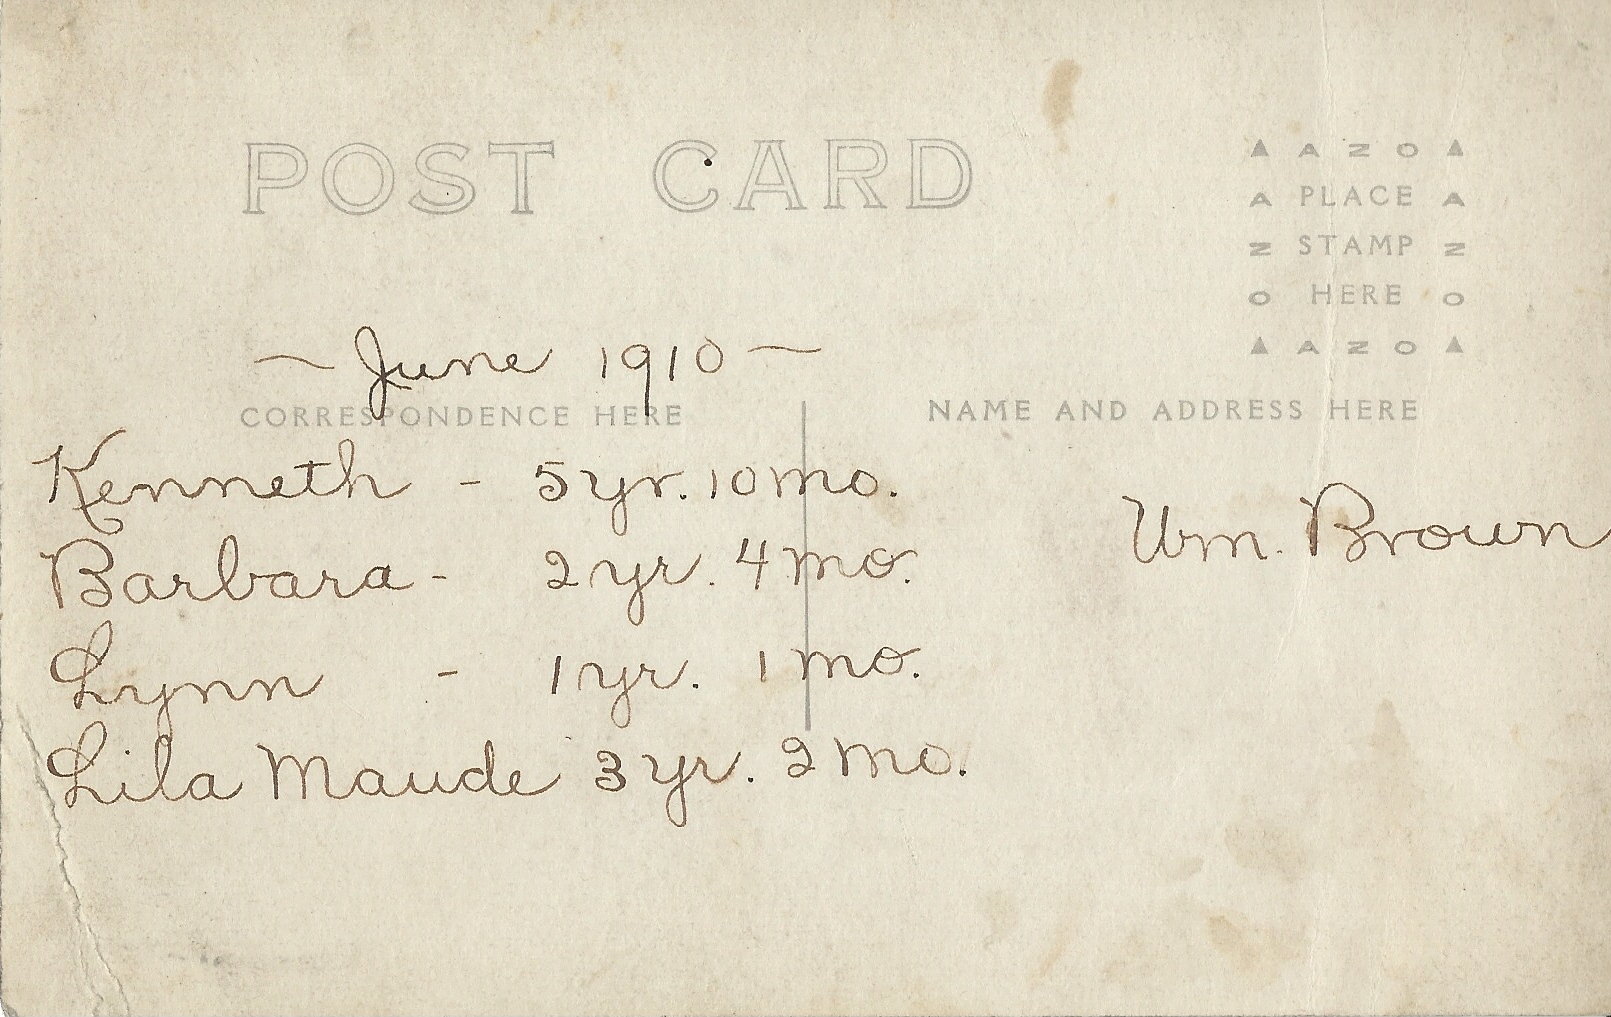 POST CARD
▲ A Z O ▲
A PLACE A
Z STAMP Z
O HERE O
▲ A Z O ▲
~ June 1910 ~
CORRESPONDENCE HERE
NAME AND ADDRESS HERE
Kenneth - 5 yr. 10 mo.
Barbara - 2 yr. 4 mo.
Lynn - 1 yr. 1 mo.
Lila Maude 3 yr. 2 mo.
Wm. Brown